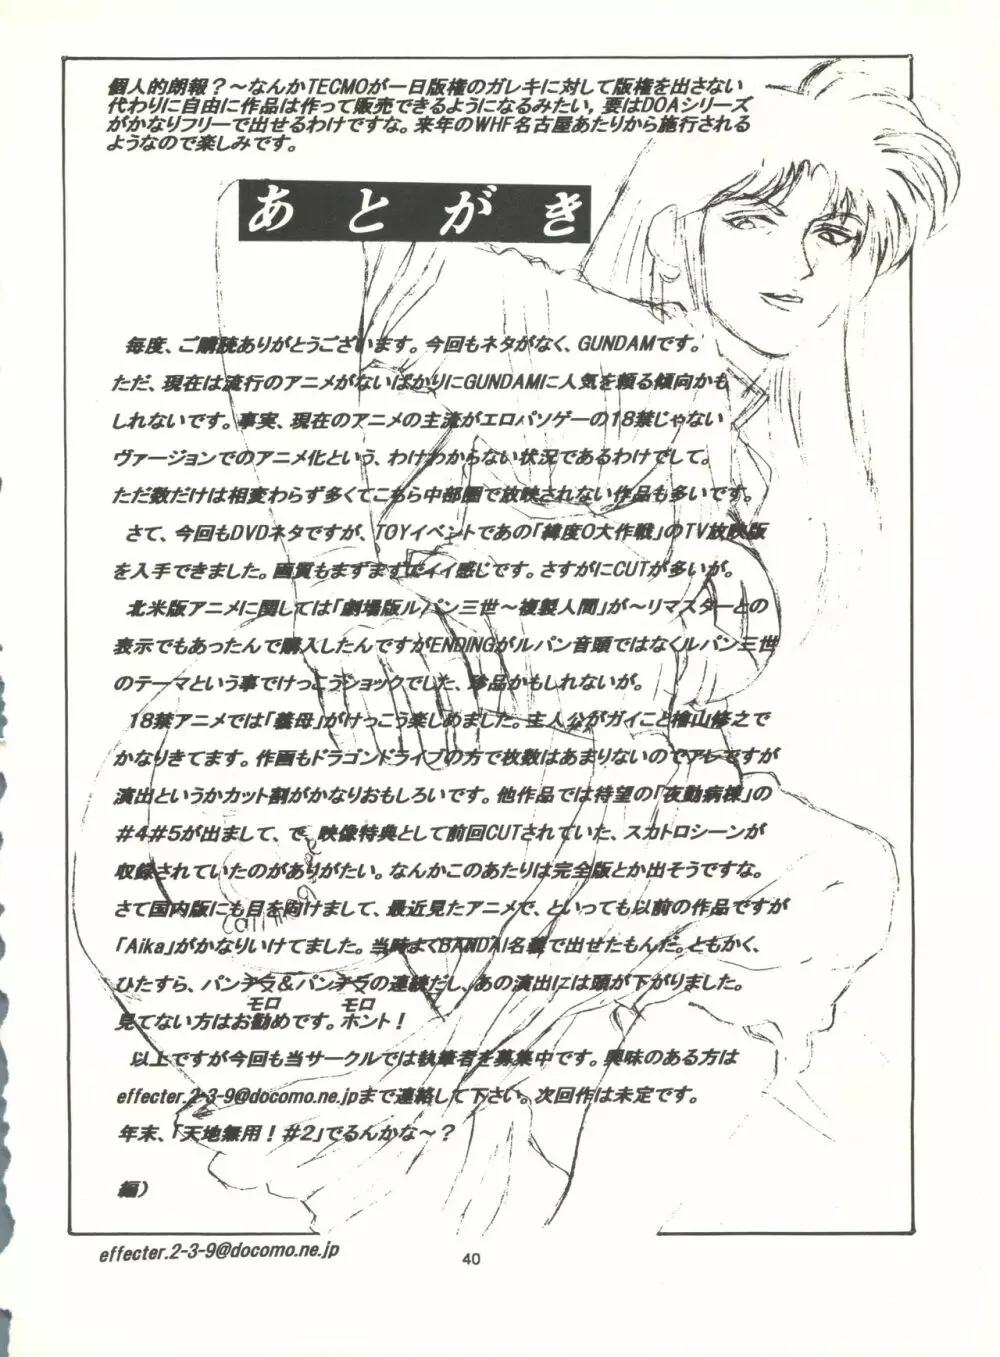 個人的朗報？～なんかTECMOが一日版権のガレキに対して版権を出さない
代わりに自由に作品は作って販売できるようになるみたい，要はDOAシリーズ
がかなりフリーで出せるわけですな。来年のWHF名古屋あたりから施行される
ようなので楽しみです。
あとがき
毎度、ご購読ありがとうございます。今回もネタがなく、GUNDAMです。
ただ、現在は流行のアニメがないばかりにGUNDAMに人気を頼る傾向かも
しれないです。事実、現在のアニメの主流がエロパソゲーの18禁じゃない
ヴァージョンでのアニメ化という、わけわからない状況であるわけでして。
ただ数だけは相変わらず多くてこちら中部圏で放映されない作品も多いです。
さて、今回もDVDネタですが、TOYイベントであの「緯度0大作戦」のTV放映版
を入手できました。画質もまずまずでイイ感じです。さすがにCUTが多いが。
北米版アニメに関しては「劇場版ルパン三世～複製人間」が～リマスターとの
表示でもあったんで購入したんですがENDINGがルパン音頭ではなくルパン三世
のテーマという事でけっこうショックでした、珍品かもしれないが。
18禁アニメでは「義母」がけっこう楽しめました。主人公がガイこと檜山修之で
かなりきてます。作画もドラゴンドライブの方で枚数はあまりないのでアレですが
演出というかカット割がかなりおもしろいです。他作品では待望の「夜勤病棟」の
＃4＃5が出まして、で、映像特典として前回CUTされていた、スカトロシーンが
収録されていたのがありがたい。なんかこのあたりは完全版とか出そうですな。
さて国内版にも目を向けまして、最近見たアニメで、といっても以前の作品ですが
「Aika」がかなりいけてました。当時よくBANDAI名義で出せたもんだ。ともかく、
ひたすら、パンチラ＆パンチラの連続だし、あの演出には頭が下がりました。
モロ モロ
見てない方はお勧めです。ホント！
以上ですが今回も当サークルでは執筆者を募集中です。興味のある方は
effecter.2-3-9@docomo.ne.jpまで連絡して下さい。次回作は未定です。
年末、「天地無用！＃2」でるんかな～？
編）
effecter.2-3-9@docomo.ne.jp
40